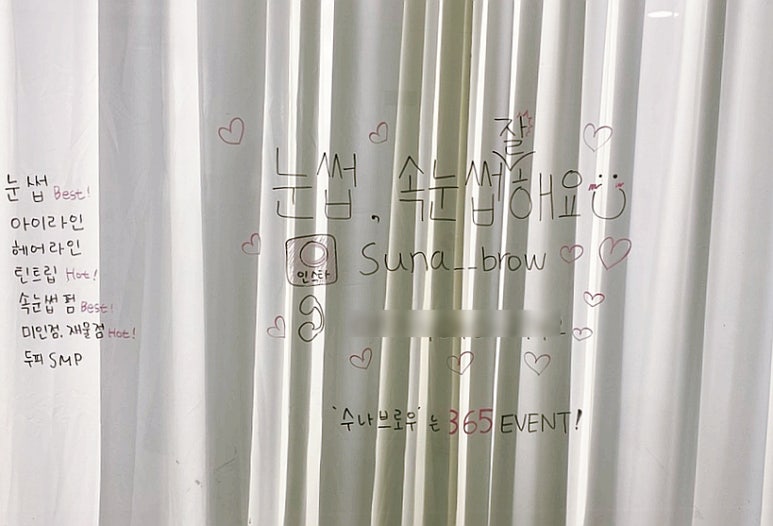 눈썹 Best!
아이라인
헤어라인
틴트립 Hot!
속눈썹 펌 Best!
미인점. 재물점 Hot!
두피 SMP
잘
눈썹, 속눈썹해요
인스타 Suna__brow
'수나브로우'는 365 EVENT!